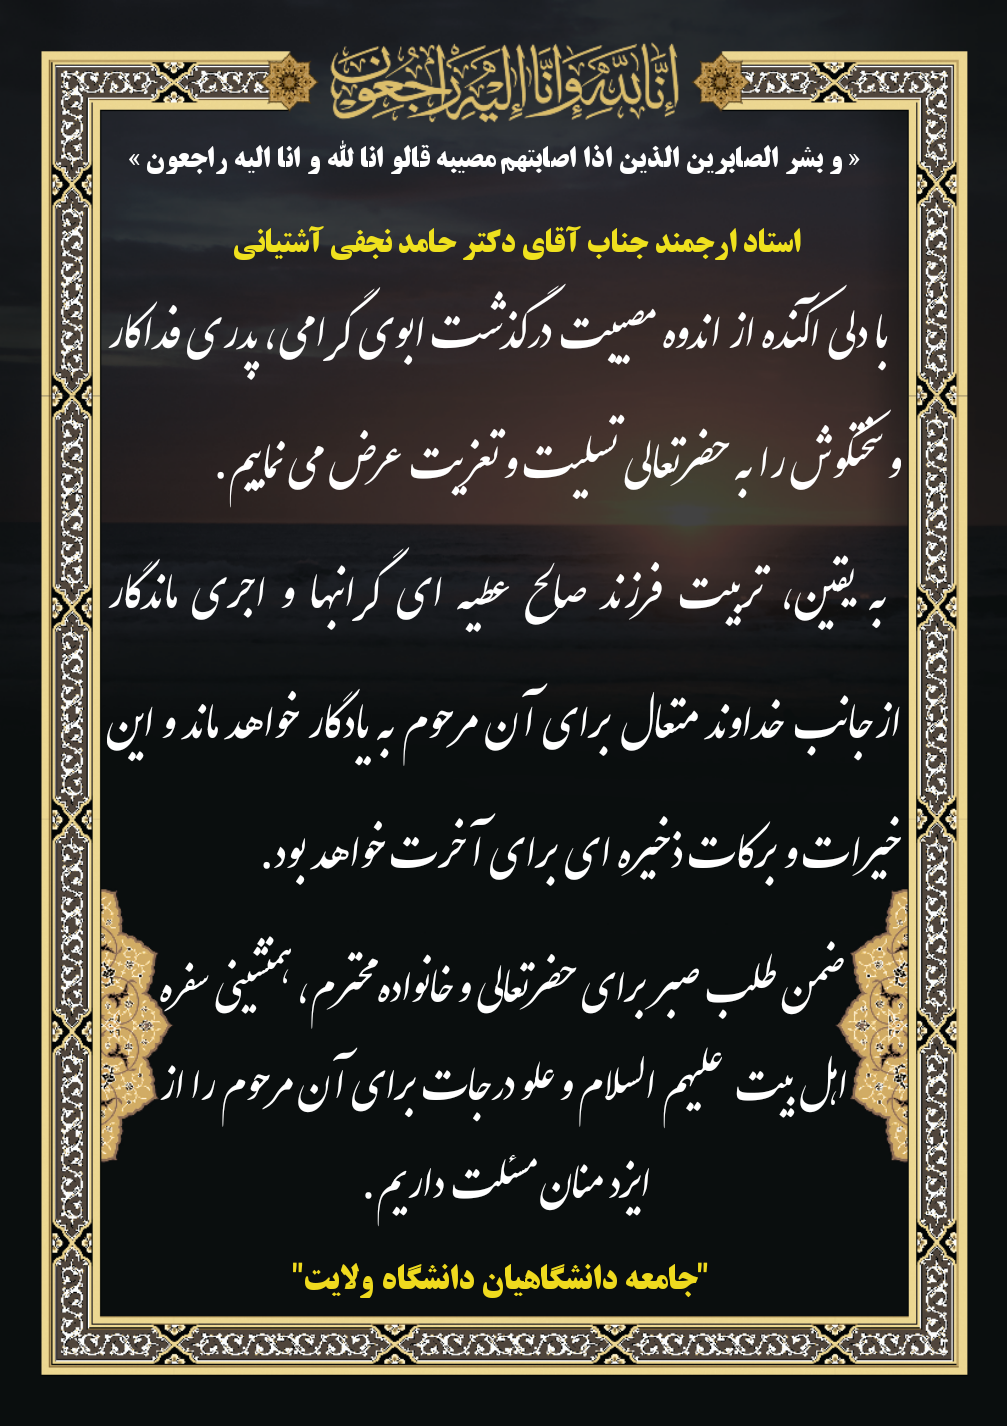 إنا لله وإنا إليه راجعون
« و بشر الصابرین الذین اذا اصابتهم مصیبه قالو انا لله و انا الیه راجعون »
استاد ارجمند جناب آقای دکتر حامد نجفی آشتیانی
با دلی آکنده از اندوه مصیبت درگذشت ابوی گرامی، پدری فداکار
و سختکوش را به حضرتعالی تسلیت و تعزیت عرض می نماییم.
به یقین، تربیت فرزند صالح عطیه ای گرانبها و اجری ماندگار
از جانب خداوند متعال برای آن مرحوم به یادگار خواهد ماند و این
خیرات و برکات ذخیره ای برای آخرت خواهد بود.
ضمن طلب صبر برای حضرتعالی و خانواده محترم، همنشینی سفره
اهل بیت علیهم السلام و علو درجات برای آن مرحوم را از
ایزد منان مسئلت داریم.
"جامعه دانشگاهیان دانشگاه ولایت"